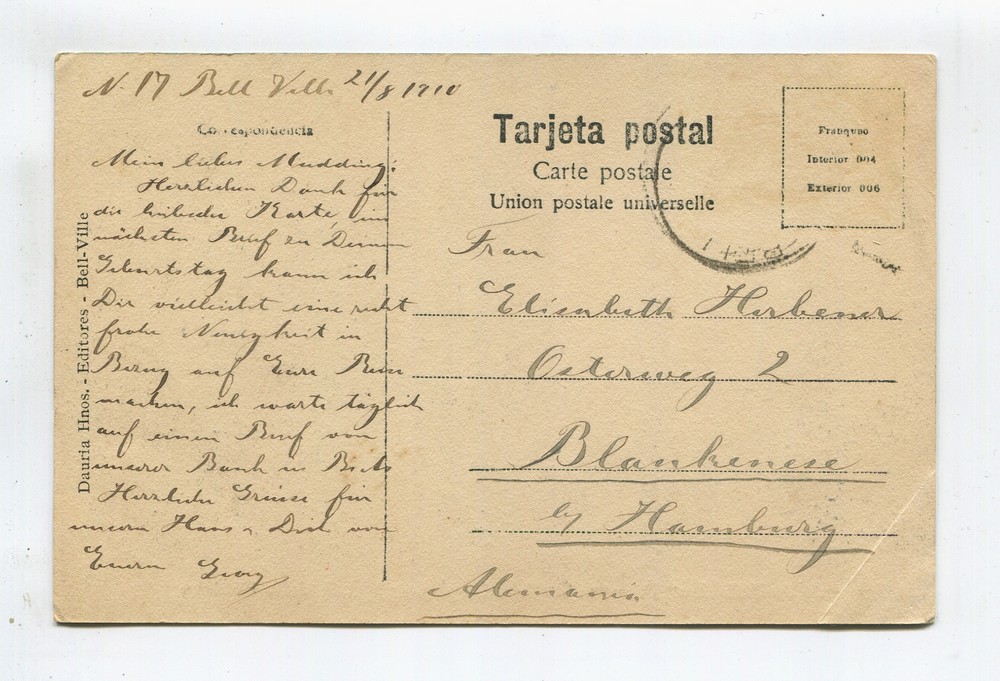 N. 17 Bell Ville 21/8 1910
Correspondencia
Mein liebes Mudding!
Herzlichen Dank für
die liebe Karte, im
nächsten Brief zu Deinem
Geburtstag kann ich
Dir vielleicht eine recht
frohe Neuigkeit in
Bezug auf Eure Reise
machen, ich warte täglich
auf einen Brief von
unserer Bank in
Herzliche Grüsse für
unsern Hans u. Dich von
Euerm Georg
Dauria Hnos. - Editores - Bell-Ville
Tarjeta postal
Carte postale
Union postale universelle
Franqueo
Interior 004
Exterior 006
Frau
Elisabeth
Osterweg 2
Blankenese
by Hamburg
Alemania